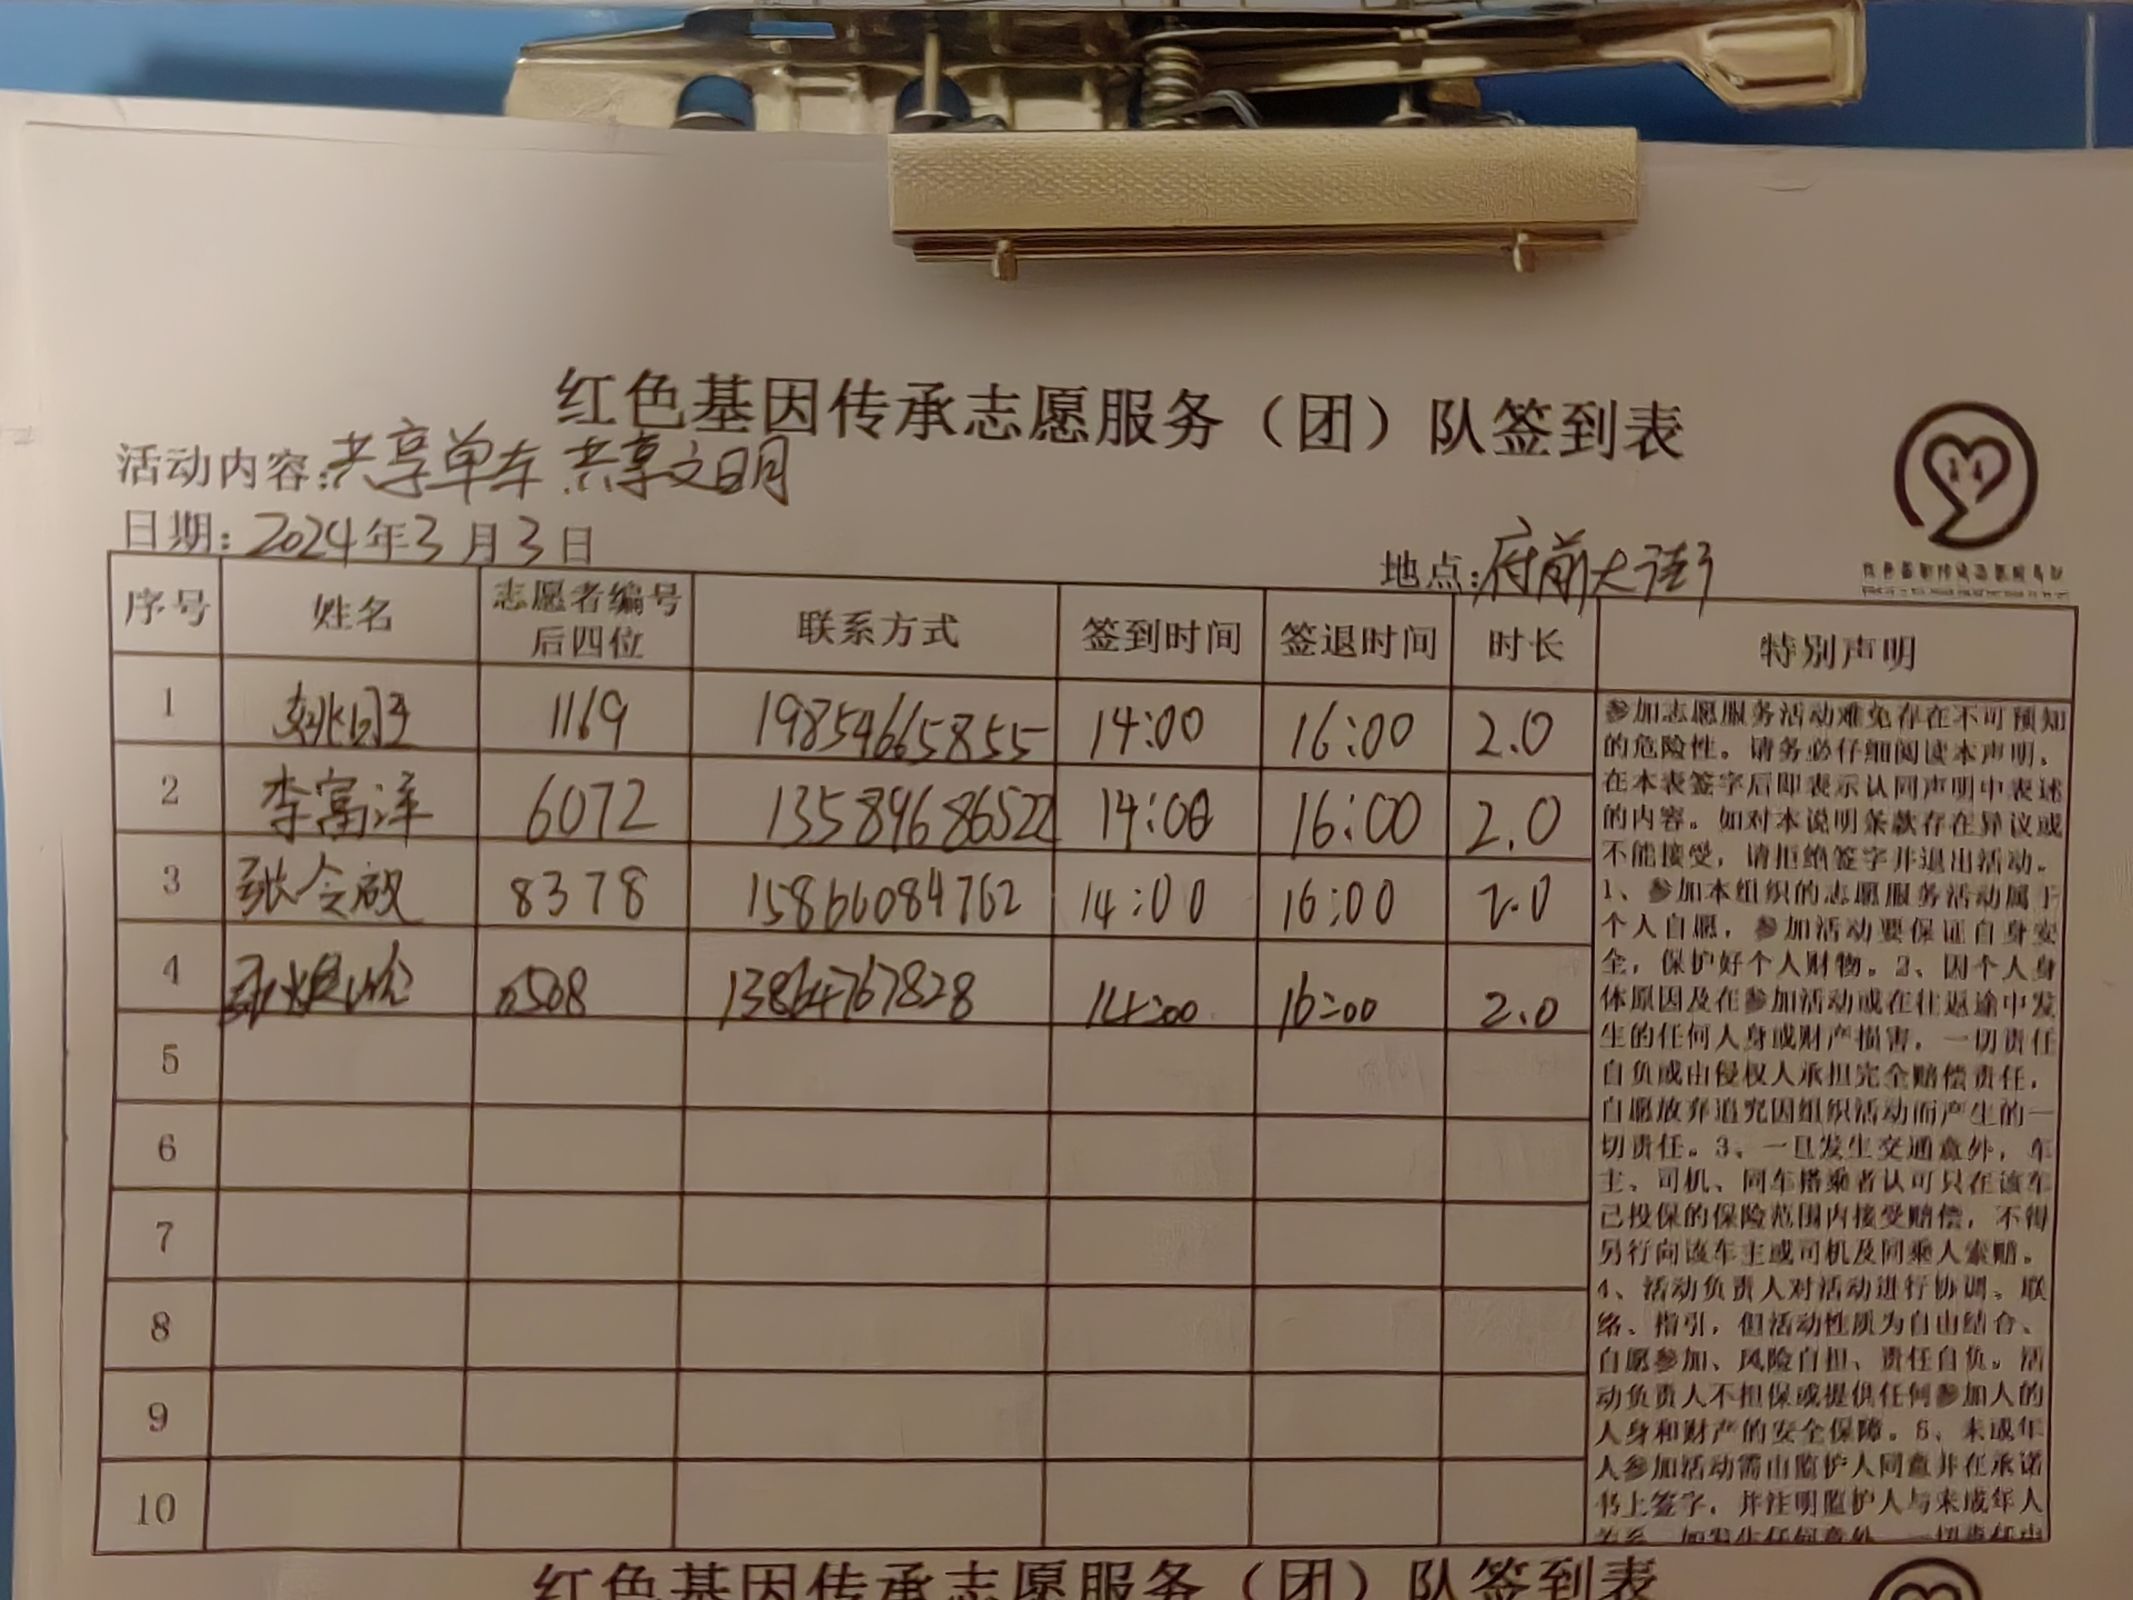 红色基因传承志愿服务（团）队签到表
活动内容：共享单车 共享文明
日期：2024年3月3日
地点：府前大街
序号 姓名 志愿者编号后四位 联系方式 签到时间 签退时间 时长 特别声明
1 1169 19854665855 14:00 16:00 2.0
2 李富泽 6072 13589686522 14:00 16:00 2.0
3 张令砚 8378 15866084762 14:00 16:00 2.0
4 0508 13864767828 14:00 16:00 2.0
5
6
7
8
9
10
参加志愿服务活动难免存在不可预知
的危险性。请务必仔细阅读本声明，
在本表签字后即表示认同声明中表述
的内容。如对本说明条款存在异议或
不能接受，请拒绝签字并退出活动。
1、参加本组织的志愿服务活动属于
个人自愿，参加活动要保证自身安
全，保护好个人财物。2、因个人身
体原因及在参加活动或在往返途中发
生的任何人身或财产损害，一切责任
自负或由侵权人承担完全赔偿责任，
自愿放弃追究因组织活动而产生的一
切责任。3、一旦发生交通意外，车
主、司机、同车搭乘者认可只在该车
已投保的保险范围内接受赔偿，不得
另行向该车主或司机及同乘人索赔。
4、活动负责人对活动进行协调、联
络、指引，但活动性质为自由结合、
自愿参加、风险自担、责任自负。活
动负责人不担保或提供任何参加人的
人身和财产的安全保障。5、未成年
人参加活动需由监护人同意并在承诺
书上签字，并注明监护人与未成年人
红色基因传承志愿服务（团）队签到表